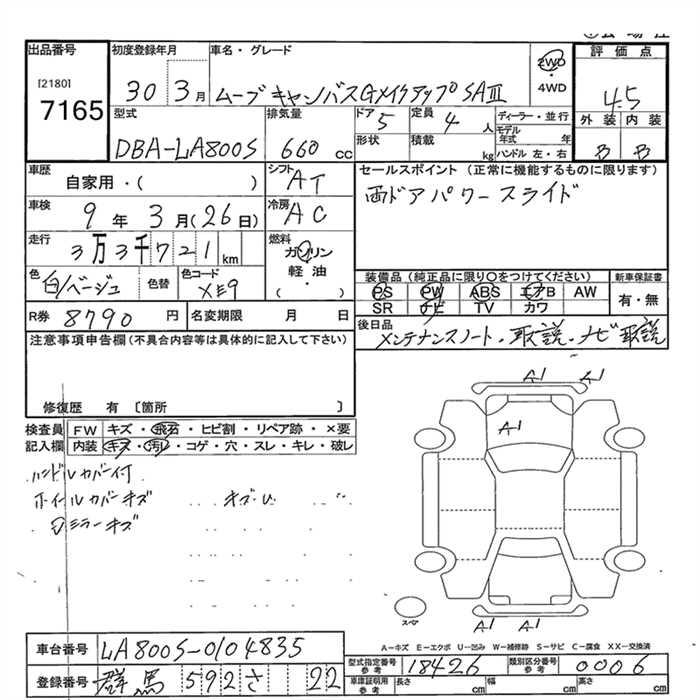 出品番号 [2180] 7165
初度登録年月 30 3月
車名・グレード ムーブキャンバスGメイクアップSAⅢ
2WD・4WD
評価点 4.5
外装 B 内装 B
型式 DBA-LA800S
排気量 660 cc
ドア 5
形状
定員 4人
積載 kg
ディーラー・並行
モデル年式 年
ハンドル 左・右
車歴 自家用・( )
シフト AT
車検 9年3月(26日)
冷房 AC
走行 3万3千721km
燃料 ガソリン 軽油・( )
色 白/ベージュ
色替
色コード XE9
R券 8790 円
名変期限 月 日
セールスポイント(正常に機能するものに限ります)
両ドアパワースライド
装備品(純正品に限り○をつけてください)
PS PW ABS エアB AW
SR ナビ TV カワ
新車保証書 有・無
後日品 メンテナンスノート・取説・ナビ取説
注意事項申告欄(不具合内容等は具体的に記入して下さい)
修復歴 有〔箇所 〕
検査員記入欄
FW キズ・飛石・ヒビ割・リペア跡・×要
内装 キズ・汚れ・コゲ・穴・スレ・キレ・破レ
ハンドルカバー付
ホイールカバーキズ
ミラーキズ
キズ・U
A1 A1
A1
A1 A1
スペア
A-キズ E-エクボ U-凹み W-補修跡 S-サビ C-腐食 XX-交換済
車台番号 LA800S-0104835
登録番号 群馬 592 さ 22
型式指定番号 参考 18426
類別区分番号 参考 0006
車庫証明用 参考 長さ cm 幅 cm 高さ cm